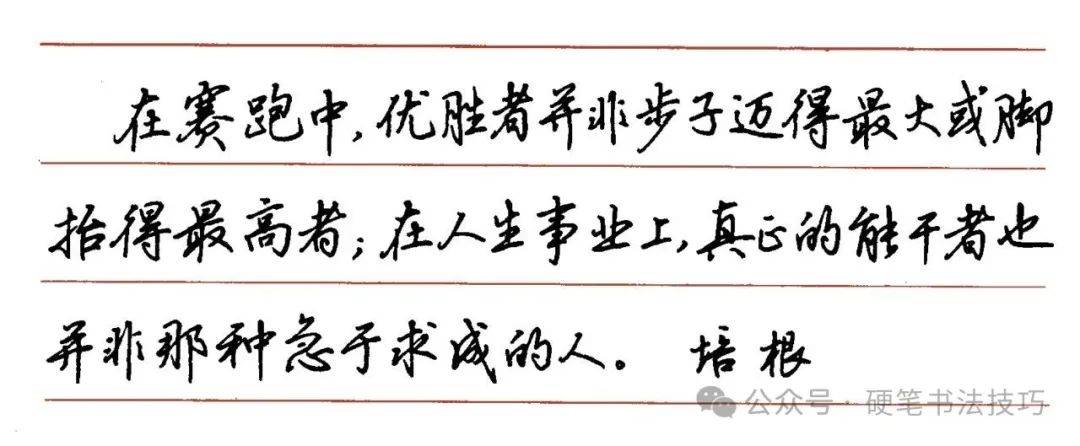 在赛跑中,优胜者并非步子迈得最大或脚
抬得最高者;在人生事业上,真正的能干者也
并非那种急于求成的人。 培根
公众号·硬笔书法技巧